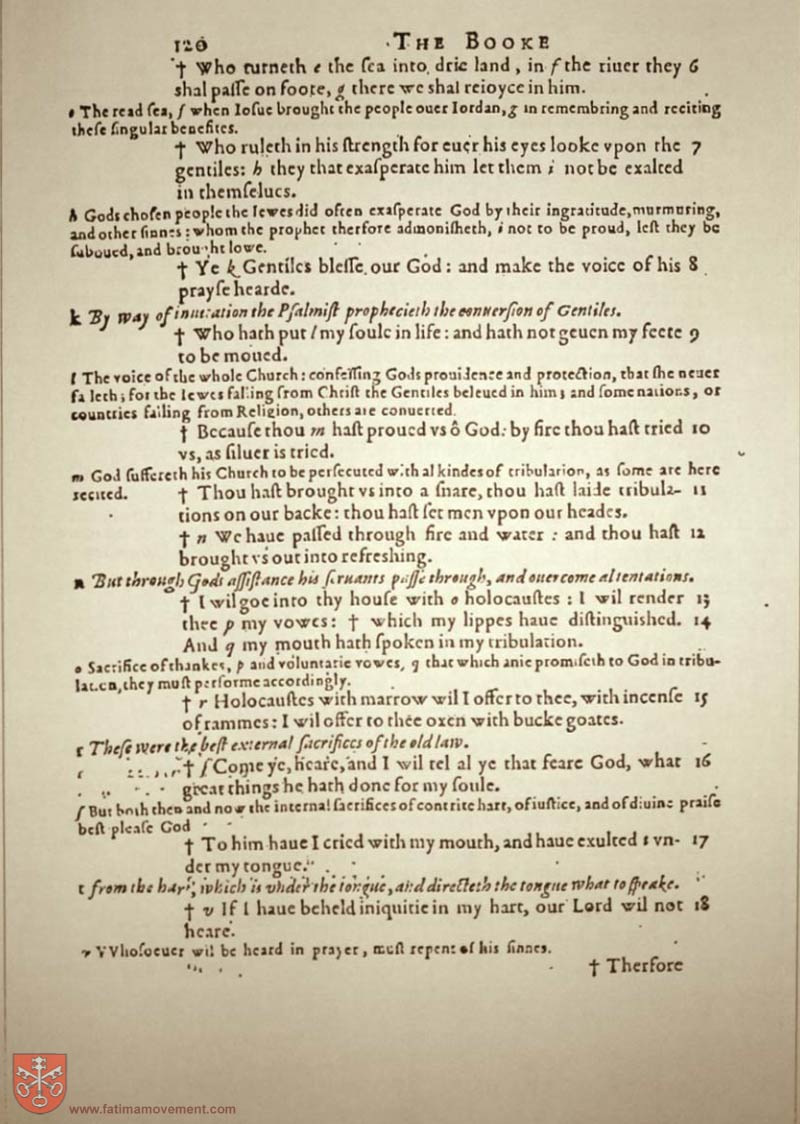 120 THE BOOKE
† Who turneth e the ſea into drie land, in f the riuer they 6
shal paſſe on foote, g there we shal reioyce in him.
e The read ſea, f when Ioſue brought the people ouer Iordan, g in remembring and reciting
theſe ſingular benefites.
† Who ruleth in his ſtrength for euer his eyes looke vpon the 7
gentiles: h they that exaſperate him let them i not be exalted
in themſelues.
h Gods choſen people the Iewes did often exaſperate God by their ingratitude, murmuring,
and other ſinnes: whom the prophet therfore admoniſheth, i not to be proud, leſt they be
ſubdued, and brought lowe.
† Ye k Gentiles bleſſe our God: and make the voice of his 8
prayſe hearde.
k By way of inuitation the Pſalmiſt prophecieth the conuerſion of Gentiles.
† Who hath put l my ſoule in life: and hath not geuen my feete 9
to be moued.
l The voice of the whole Church: confeſſing Gods prouidence and protection, that ſhe neuer
faileth; for the Iewes falling from Chriſt the Gentiles beleued in him; and ſome nations, or
countries falling from Religion, others are conuerted.
† Becauſe thou m haſt proued vs ô God: by fire thou haſt tried 10
vs, as ſiluer is tried.
m God ſuffereth his Church to be perſecuted with al kindes of tribulation, as ſome are here
recited. † Thou haſt brought vs into a ſnare, thou haſt laide tribula- 11
tions on our backe: thou haſt ſet men vpon our heades.
† n We haue paſſed through fire and water: and thou haſt 12
brought vs out into refreſhing.
n But through Gods aſſiſtance his ſeruants paſſe through, and ouercome al tentations.
† I wil goe into thy houſe with o holocauſtes: I wil render 13
thee p my vowes: † which my lippes haue diſtinguiſhed. 14
And q my mouth hath ſpoken in my tribulation.
o Sacrifice of thankes, p and voluntarie vowes, q that which anie promiſeth to God in tribu-
lation, they muſt performe accordingly.
† r Holocauſtes with marrow wil I offer to thee, with incenſe 15
of rammes: I wil offer to thee oxen with bucke goates.
r Theſe were the beſt external ſacrifices of the old law.
† ſ Come ye, heare, and I wil tel al ye that feare God, what 16
great things he hath done for my ſoule.
ſ But both then and now the internal ſacrifices of contrite hart, of iuſtice, and of diuine praiſe
beſt pleaſe God
† To him haue I cried with my mouth, and haue exulted t vn- 17
der my tongue.
t from the hart, which is vnder the tongue, and directeth the tongue what to ſpeake.
† v If I haue beheld iniquitie in my hart, our Lord wil not 18
heare.
v VVhoſoeuer wil be heard in prayer, muſt repent of his ſinnes.
† Therfore
www.fatimamovement.com